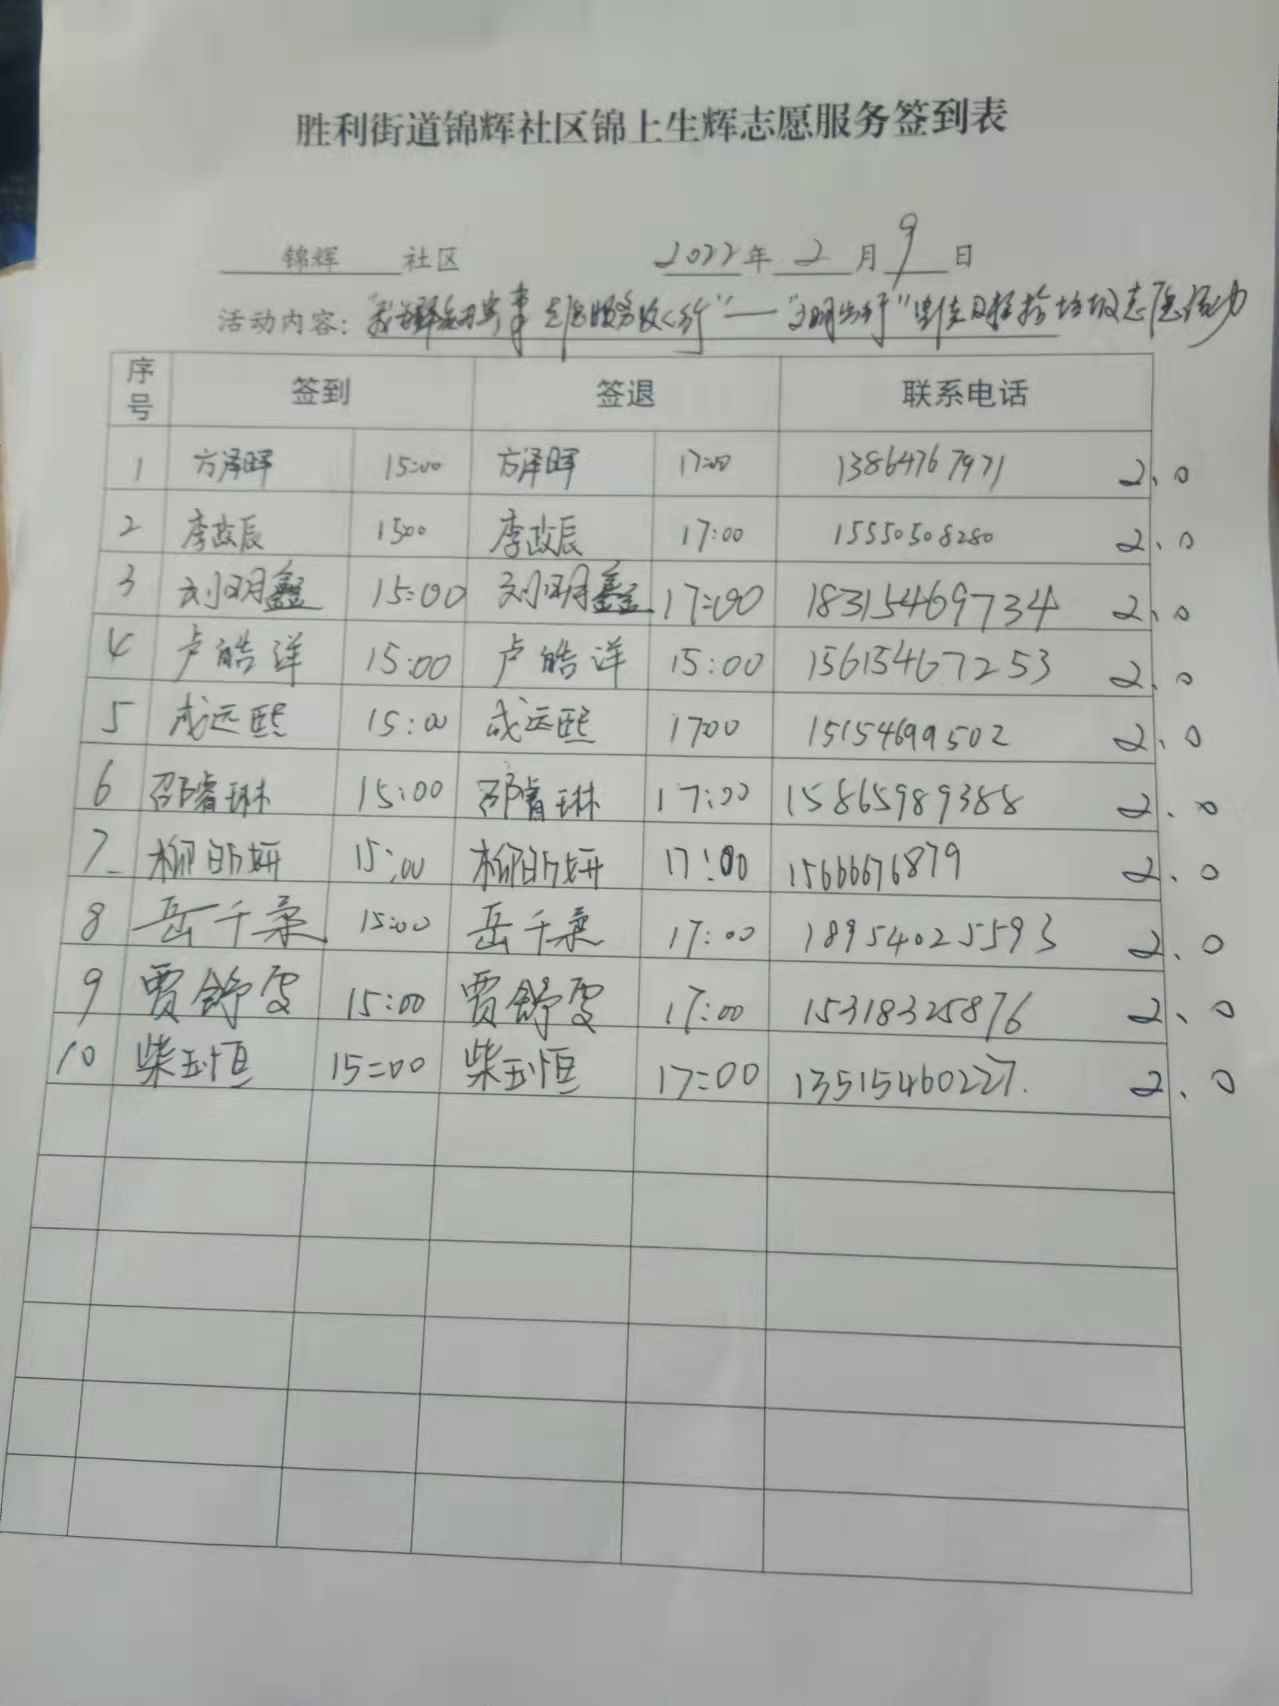 胜利街道锦辉社区锦上生辉志愿服务签到表
锦辉 社区 2022年 2 月 9 日
活动内容: "我为群众办实事 志愿服务" — "文明出行" 志愿活动
序号 签到 签退 联系电话
1 方泽晖 15:00 方泽晖 17:00 13864767971 2.0
2 李政辰 1500 李政辰 17:00 15550508280 2.0
3 刘明鑫 15:00 刘明鑫 17:00 183154469734 2.0
4 卢皓洋 15:00 卢皓洋 15:00 15615467253 2.0
5 成远熙 15:00 成远熙 1700 15154699502 2.0
6 邵睿琳 15:00 邵睿琳 17:00 15865989388 2.0
7 柳昕妍 15:00 柳昕妍 17:00 15666676879 2.0
8 岳千柔 15:00 岳千柔 17:00 18954025593 2.0
9 贾舒雯 15:00 贾舒雯 17:00 15318325876 2.0
10 柴玉恒 15:00 柴玉恒 17:00 13515460227. 2.0